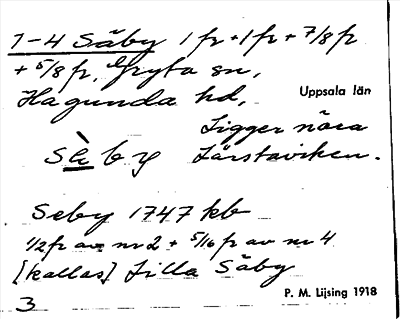 1-4 Säby 1 fr + 1 fr + 7/8 fr
+ 5/8 fr, Gryta sn,
Hagunda hd, Uppsala län
Ligger nära
sè̱by Lårstaviken.
Seby 1747 kb
1/2 fr av nr 2 + 5/16 fr av nr 4
[kallas] Lilla Säby
3 P. M. Lijsing 1918